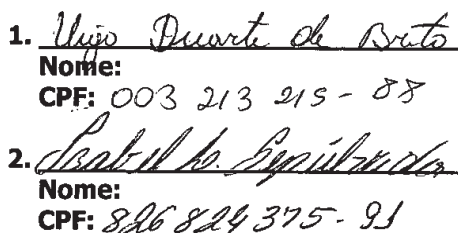 1. Uigo Duarte de Brito
Nome:
CPF: 003 213 215 - 88
2. Isabel L. Sepúlveda
Nome:
CPF: 826 824 375 - 91